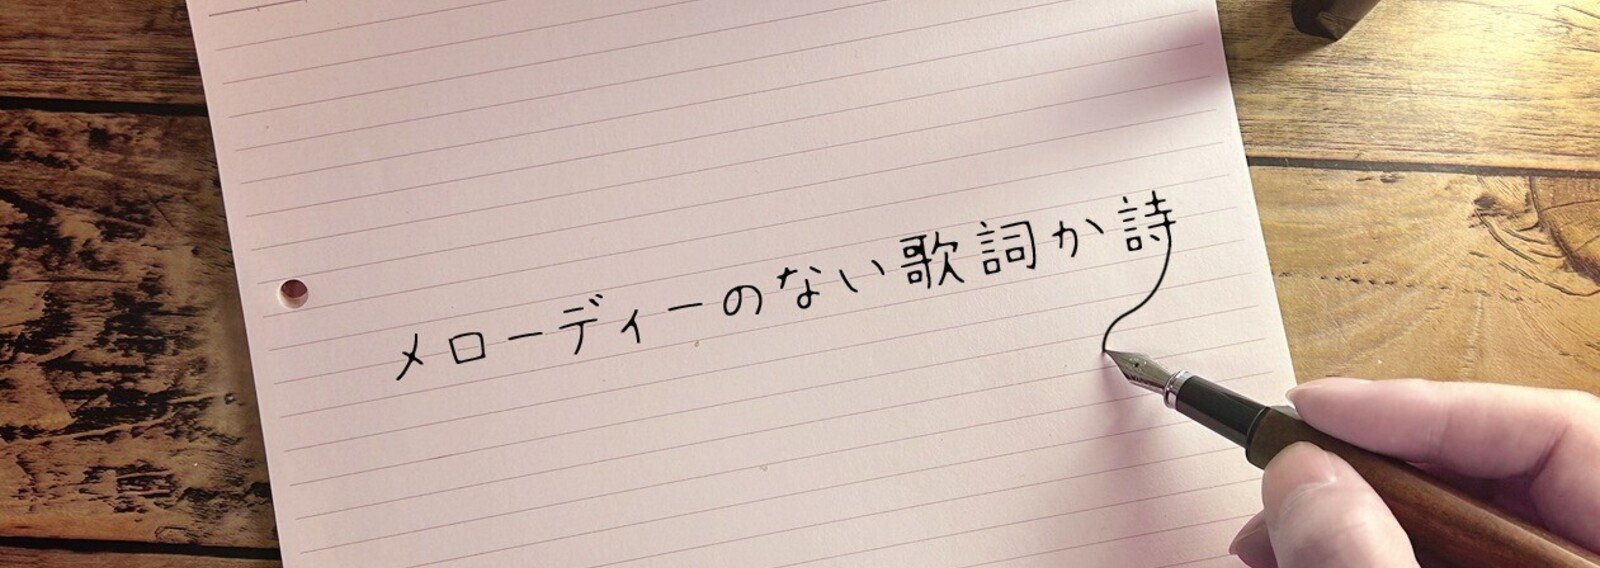 メローディーのない歌詞か詩